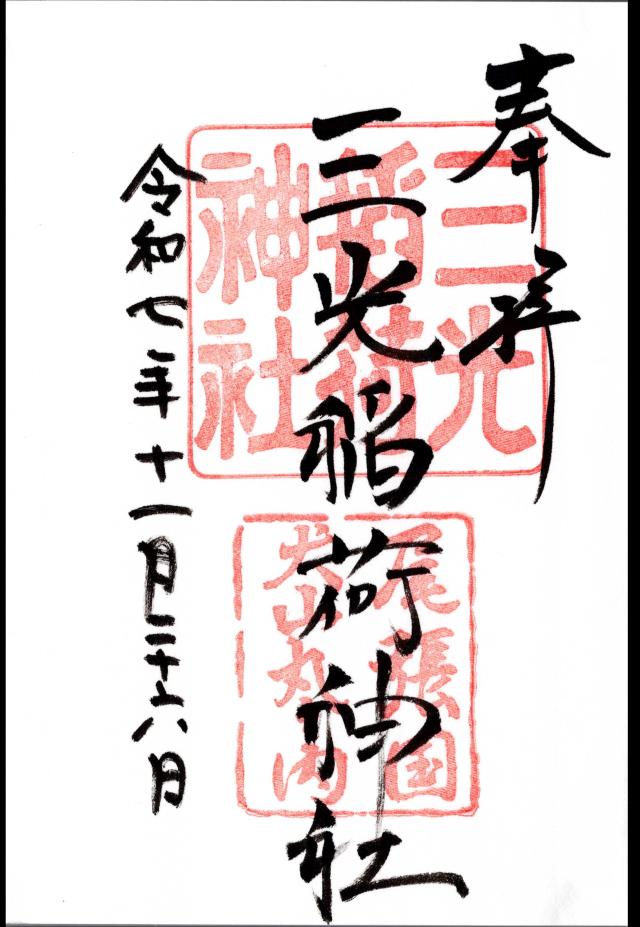 奉拝
三光稲荷神社
令和七年十一月二十六月
三光
稲荷
神社
尾張国
犬山丸ノ内